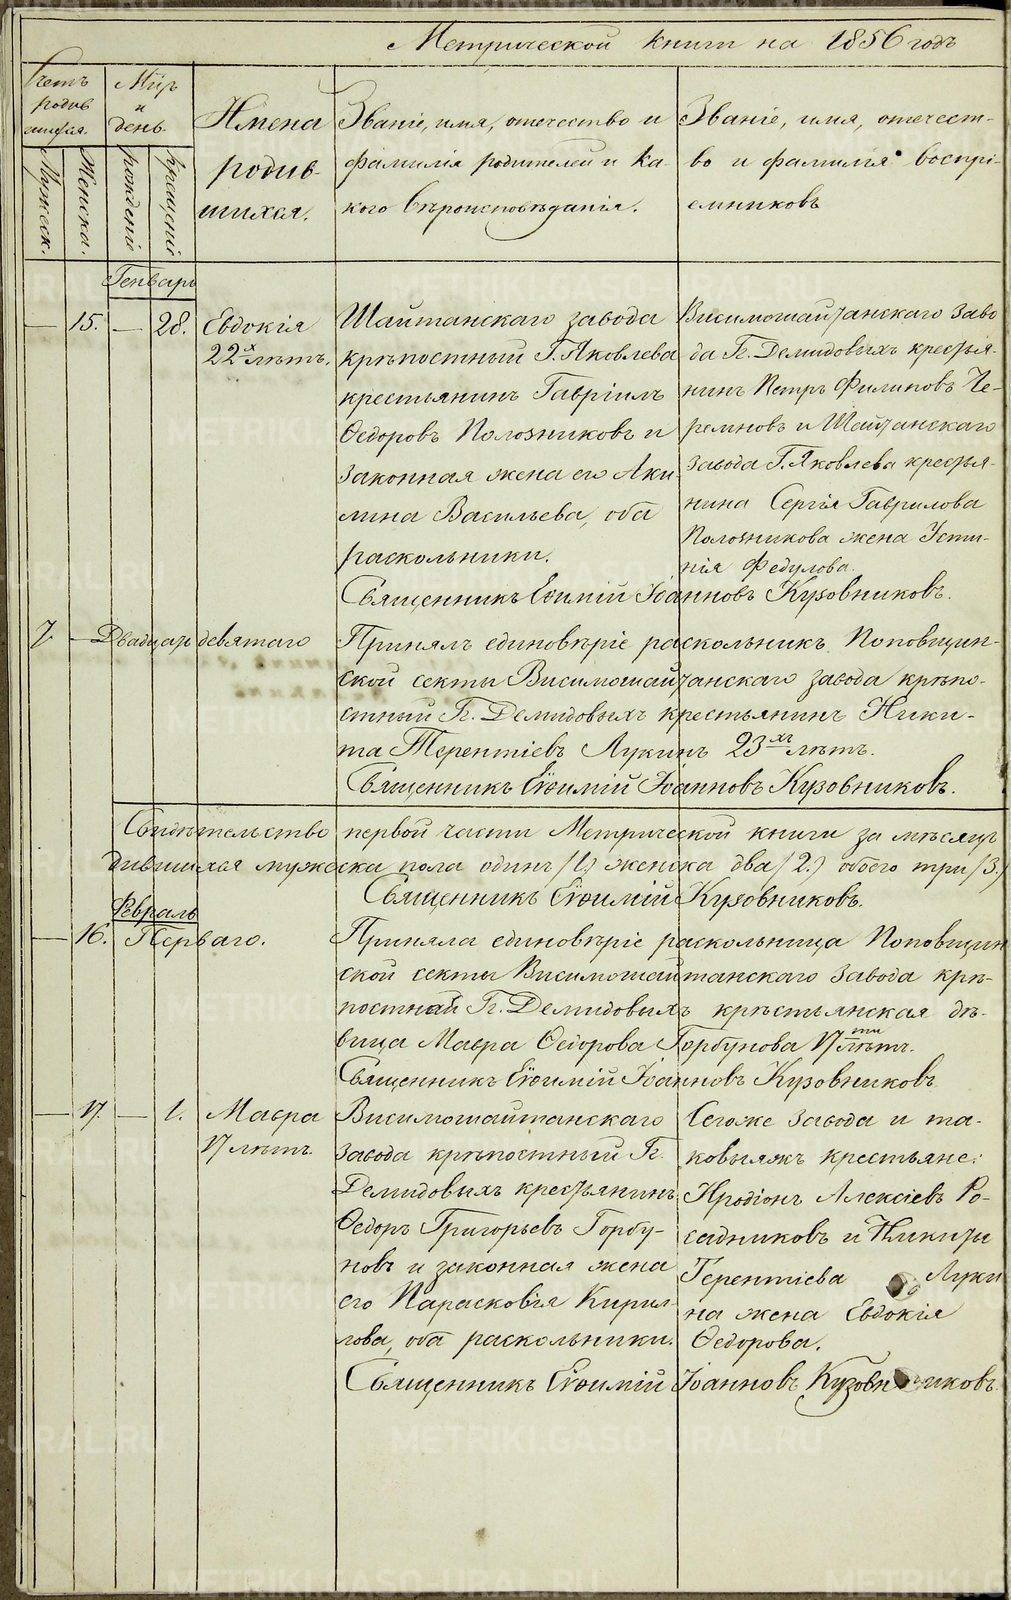 Метрической книги на 1856 годъ
Счетъ родив шихся.
Мужеск.
Женска.
Мѣс. и день.
рожденiе
крещенiе
Имена родив- шихся.
Званіе, имя, отечество и
фамилія родителей и ка-
кого вѣроисповѣданія.
Званіе, имя, отечест-
во и фамилія воспрі-
емниковъ
Генварь
— 15. — 28.
Евдокія
22х лѣтъ.
Шайтанскаго завода
крѣпостный Г. Яковлева
крестьянинъ Гавріилъ
Ѳедоровъ Полозниковъ и
законная жена его Аки-
лина Васильева, оба
раскольники.
Висимошайтанскаго заво
да Гг. Демидовыхъ крестья-
нинъ Петръ Филиповъ Че-
ремновъ и Шайтанскаго
завода Г. Яковлева крестья-
нина Сергія Гаврилова
Полозникова жена Усти-
нія Федулова.
Священникъ Евѳимій Іоанновъ Кузовниковъ.
7. — Двадцать девятаго
Принялъ единовѣріе раскольникъ Поповщин-
ской секты Висимошайтанскаго завода крѣпо-
стный Гг. Демидовыхъ крестьянинъ Ники-
та Терентіевъ Лукинъ 23хъ лѣтъ.
Священникъ Евѳимій Іоанновъ Кузовниковъ.
Свидѣтельство первой части Метрической книги за мѣсяцъ
дившихся мужеска пола одинъ /1./ женска два /2./ обоего три /3./
Священникъ Евѳимій Кузовниковъ.
Февраль
— 16. Перваго.
Приняла единовѣріе раскольница Поповщин
ской секты Висимошайтанскаго завода крѣ-
постная Гг. Демидовыхъ крѣстьянская дѣ-
вица Мавра Ѳедорова Горбунова 17ти лѣтъ.
Священникъ Евѳимій Іоанновъ Кузовниковъ
— 17. — 1.
Мавра
17 лѣтъ.
Висимошайтанскаго
завода крѣпостный Гг.
Демидовыхъ крестьянинъ
Ѳедоръ Григорьевъ Горбу-
новъ и законная жена
его Парасковія Кирил-
лова, оба раскольники.
Тогоже завода и та-
ковыяжъ крестьяне:
Иродіонъ Алексіевъ Ро-
садниковъ и Никиты
Терентіева Луки
на жена Евдокія
Ѳедорова.
Священникъ Евѳимій Іоанновъ Кузовниковъ